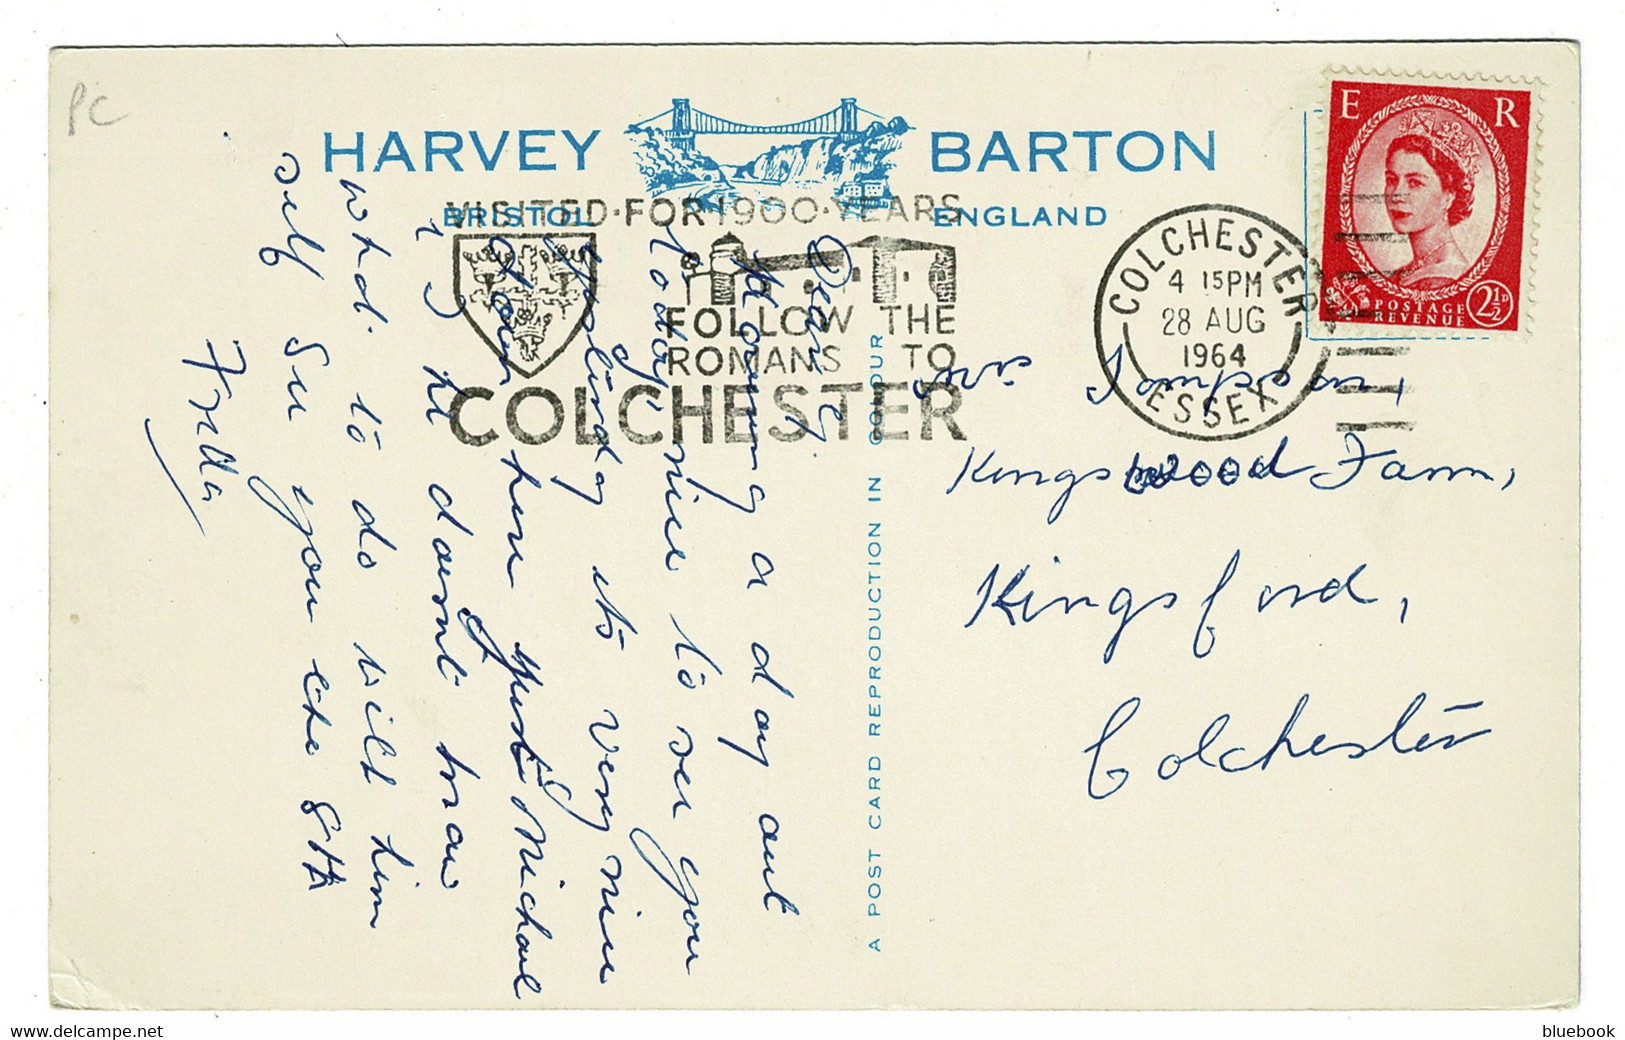 PC
HARVEY BARTON
BRISTOL ENGLAND
VISITED·FOR·1900·YEARS
FOLLOW THE
ROMANS TO
COLCHESTER
COLCHESTER
4 15PM
28 AUG
1964
ESSEX
E R
POSTAGE
REVENUE
2½D
A POST CARD REPRODUCTION IN COLOUR
Having a day out
today, nice to see you
yesterday its very nice
down here just Michael
& I he dosnt know
what to do with him
self See you the 8th
Freda
Kingswood Farm,
Kingsford,
Colchester
bluebook